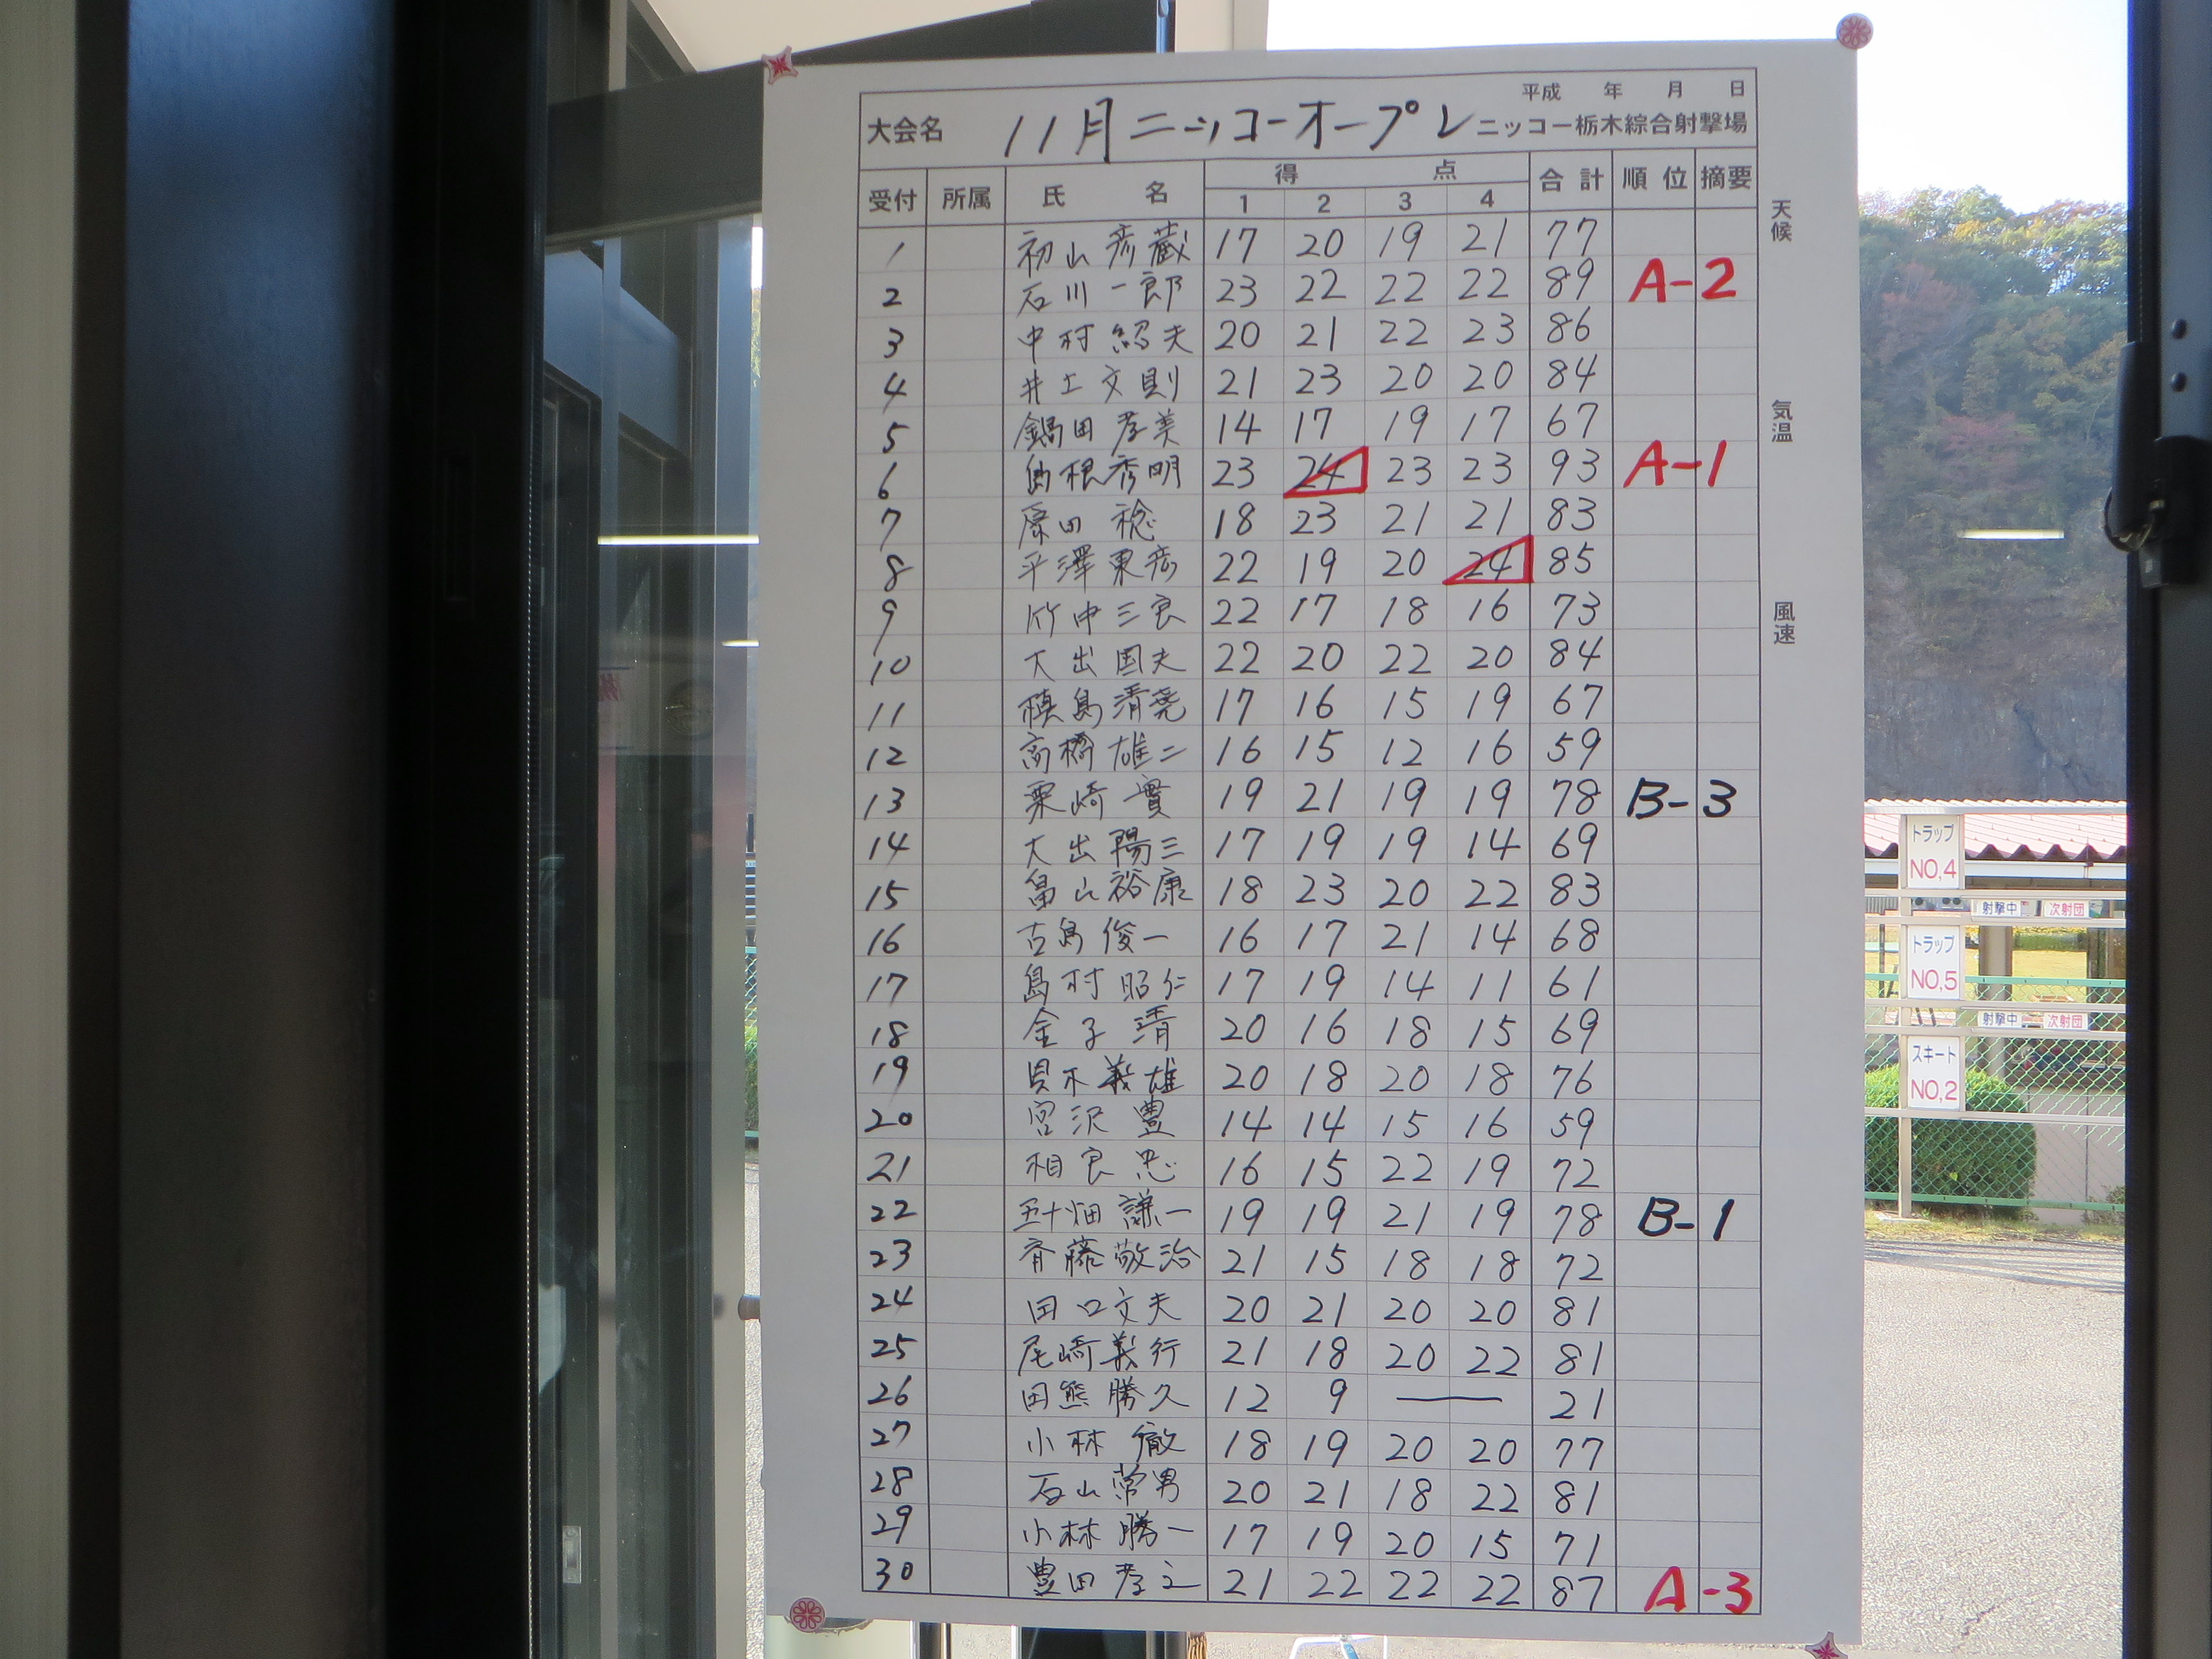 平成 年 月 日
大会名 11月ニッコーオープン ニッコー栃木綜合射撃場
受付 所属 氏 名 得 点 合計 順位 摘要
1 2 3 4
天候
気温
風速
1 初山彦蔵 17 20 19 21 77
2 石川一郎 23 22 22 22 89 A-2
3 中村紹夫 20 21 22 23 86
4 井土文則 21 23 20 20 84
5 鍋田孝美 14 17 19 17 67
6 島根秀明 23 24 23 23 93 A-1
7 原田稔 18 23 21 21 83
8 平澤東彦 22 19 20 24 85
9 竹中三良 22 17 18 16 73
10 大出国夫 22 20 22 20 84
11 槙島清尭 17 16 15 19 67
12 高橋雄二 16 15 12 16 59
13 栗崎實 19 21 19 19 78 B-3
14 大出陽三 17 19 19 14 69
15 畠山裕康 18 23 20 22 83
16 古島俊一 16 17 21 14 68
17 島村昭仁 17 19 14 11 61
18 金子清 20 16 18 15 69
19 貝木義雄 20 18 20 18 76
20 宮沢豊 14 14 15 16 59
21 相良忠 16 15 22 19 72
22 五十畑謙一 19 19 21 19 78 B-1
23 斉藤敬治 21 15 18 18 72
24 田口文夫 20 21 20 20 81
25 尾崎義行 21 18 20 22 81
26 田熊勝久 12 9 — 21
27 小林徹 18 19 20 20 77
28 石山常男 20 21 18 22 81
29 小林勝一 17 19 20 15 71
30 豊田孝之 21 22 22 22 87 A-3
トラップ
NO,4
射撃中 次射団
トラップ
NO,5
射撃中 次射団
スキート
NO,2